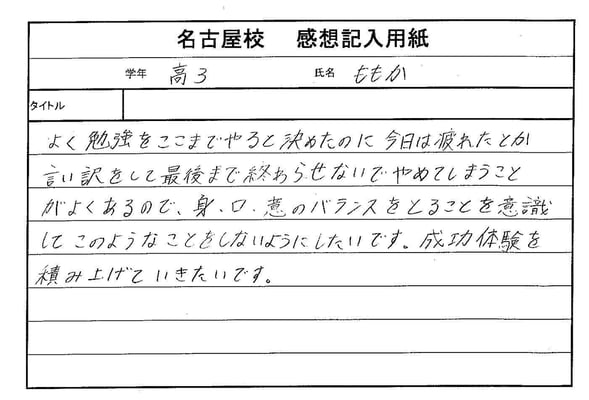 名古屋校 感想記入用紙
学年 高3 氏名 ももか
タイトル
よく勉強をここまでやると決めたのに今日は疲れたとか
言い訳をして最後まで終わらせないでやめてしまうこと
がよくあるので、身、口、意のバランスをとることを意識
してこのようなことをしないようにしたいです。成功体験を
積み上げていきたいです。